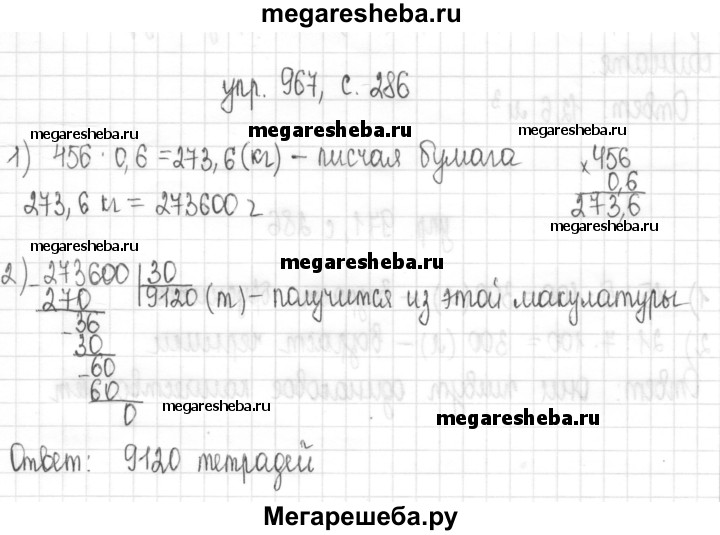 megaresheba.ru
упр. 967, с. 286
megaresheba.ru megaresheba.ru megaresheba.ru
1) 456 · 0,6 = 273,6 (кг) – писчая бумага
× 456
0,6
273,6
273,6 кг = 273600 г
megaresheba.ru
megaresheba.ru megaresheba.ru
2) - 273600 | 30
270 9120 (т) – получится из этой макулатуры
- 36
30
- 60
60
0
megaresheba.ru megaresheba.ru
Ответ: 9120 тетрадей
Мегарешеба.ру